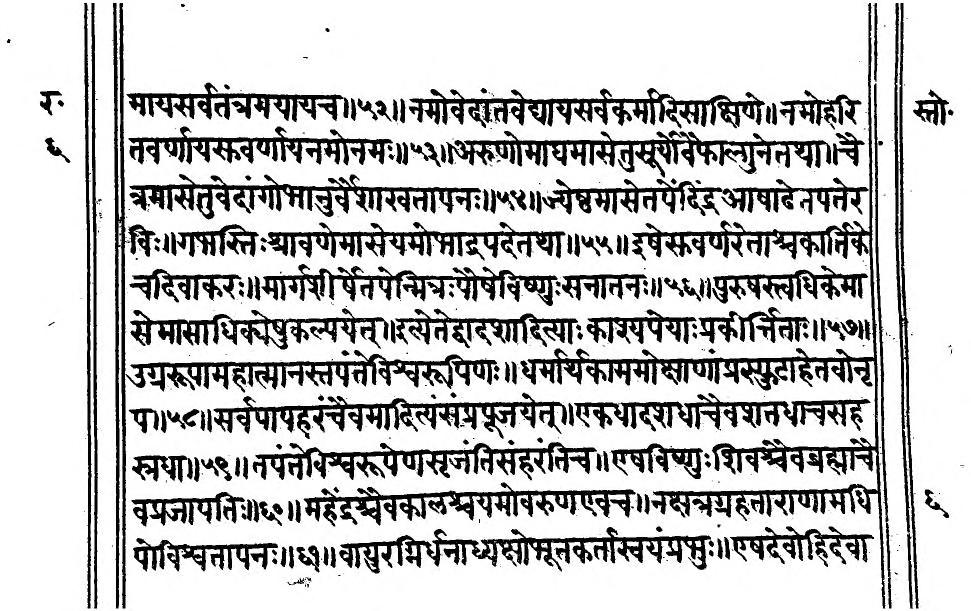 र॰
६
मायसर्वतंत्रमयायच॥५२॥नमोवेदांतवेद्यायसर्वकर्मादिसाक्षिणे॥नमोहरि
तवर्णायस्कवर्णायनमोनमः॥५३॥अरुणोमाघमासेतुसूर्योवैफाल्गुनेतथा॥चै
त्रमासेतुवेदांगोभानुर्वैशाखतापनः॥५४॥ज्येष्ठमासेतपेदिंद्र आषाढेतपतेर
विः॥गभस्तिःश्रावणेमासेयमोभाद्रपदेतथा॥५५॥इषेस्कवर्णरेताश्चकार्तिके
चदिवाकरः॥मार्गशीर्षेतपेन्मित्रःपौषेविष्णुःसनातनः॥५६॥पुरुषस्त्वधिकेमा
सेमासाधिक्येषुकल्पयेत्॥इत्येतेद्वादशादित्याःकाश्यपेयाःप्रकीर्त्तिताः॥५७॥
उग्ररूपामहात्मानस्तपंतेविश्वरूपिणः॥धर्मार्थकाममोक्षाणांप्रस्फुटाहेतवोनृ
प॥५८॥सर्वपापहरंचैवमादित्यंसंप्रपूजयेत्॥एकधादशधाचैवशतधाचसह
स्त्रधा॥५९॥तपंतेविश्वरूपेणसृजंतिसंहरंतिच॥एषविष्णुःशिवश्चैवब्रह्माचै
वप्रजापतिः॥६०॥महेंद्रश्चैवकालश्चयमोवरुणएवच॥नक्षत्रग्रहताराणामधि
पोविश्वतापनः॥६१॥वायुरग्निर्धनाध्यक्षोभूतकर्तास्वयंप्रभुः॥एषदेवोहिदेवा
स्तो॰
६